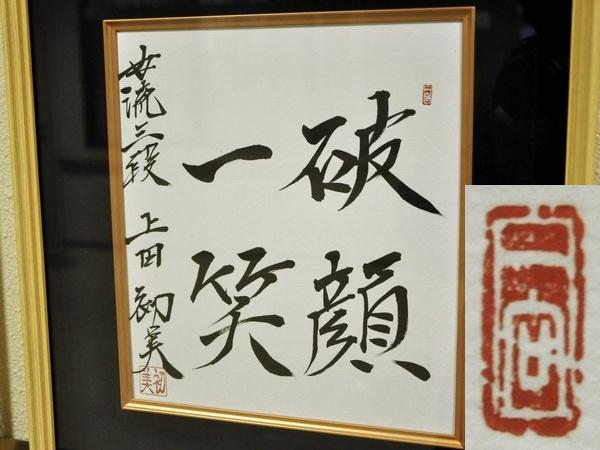 破顔
一笑
女流三段 上田初美
初美